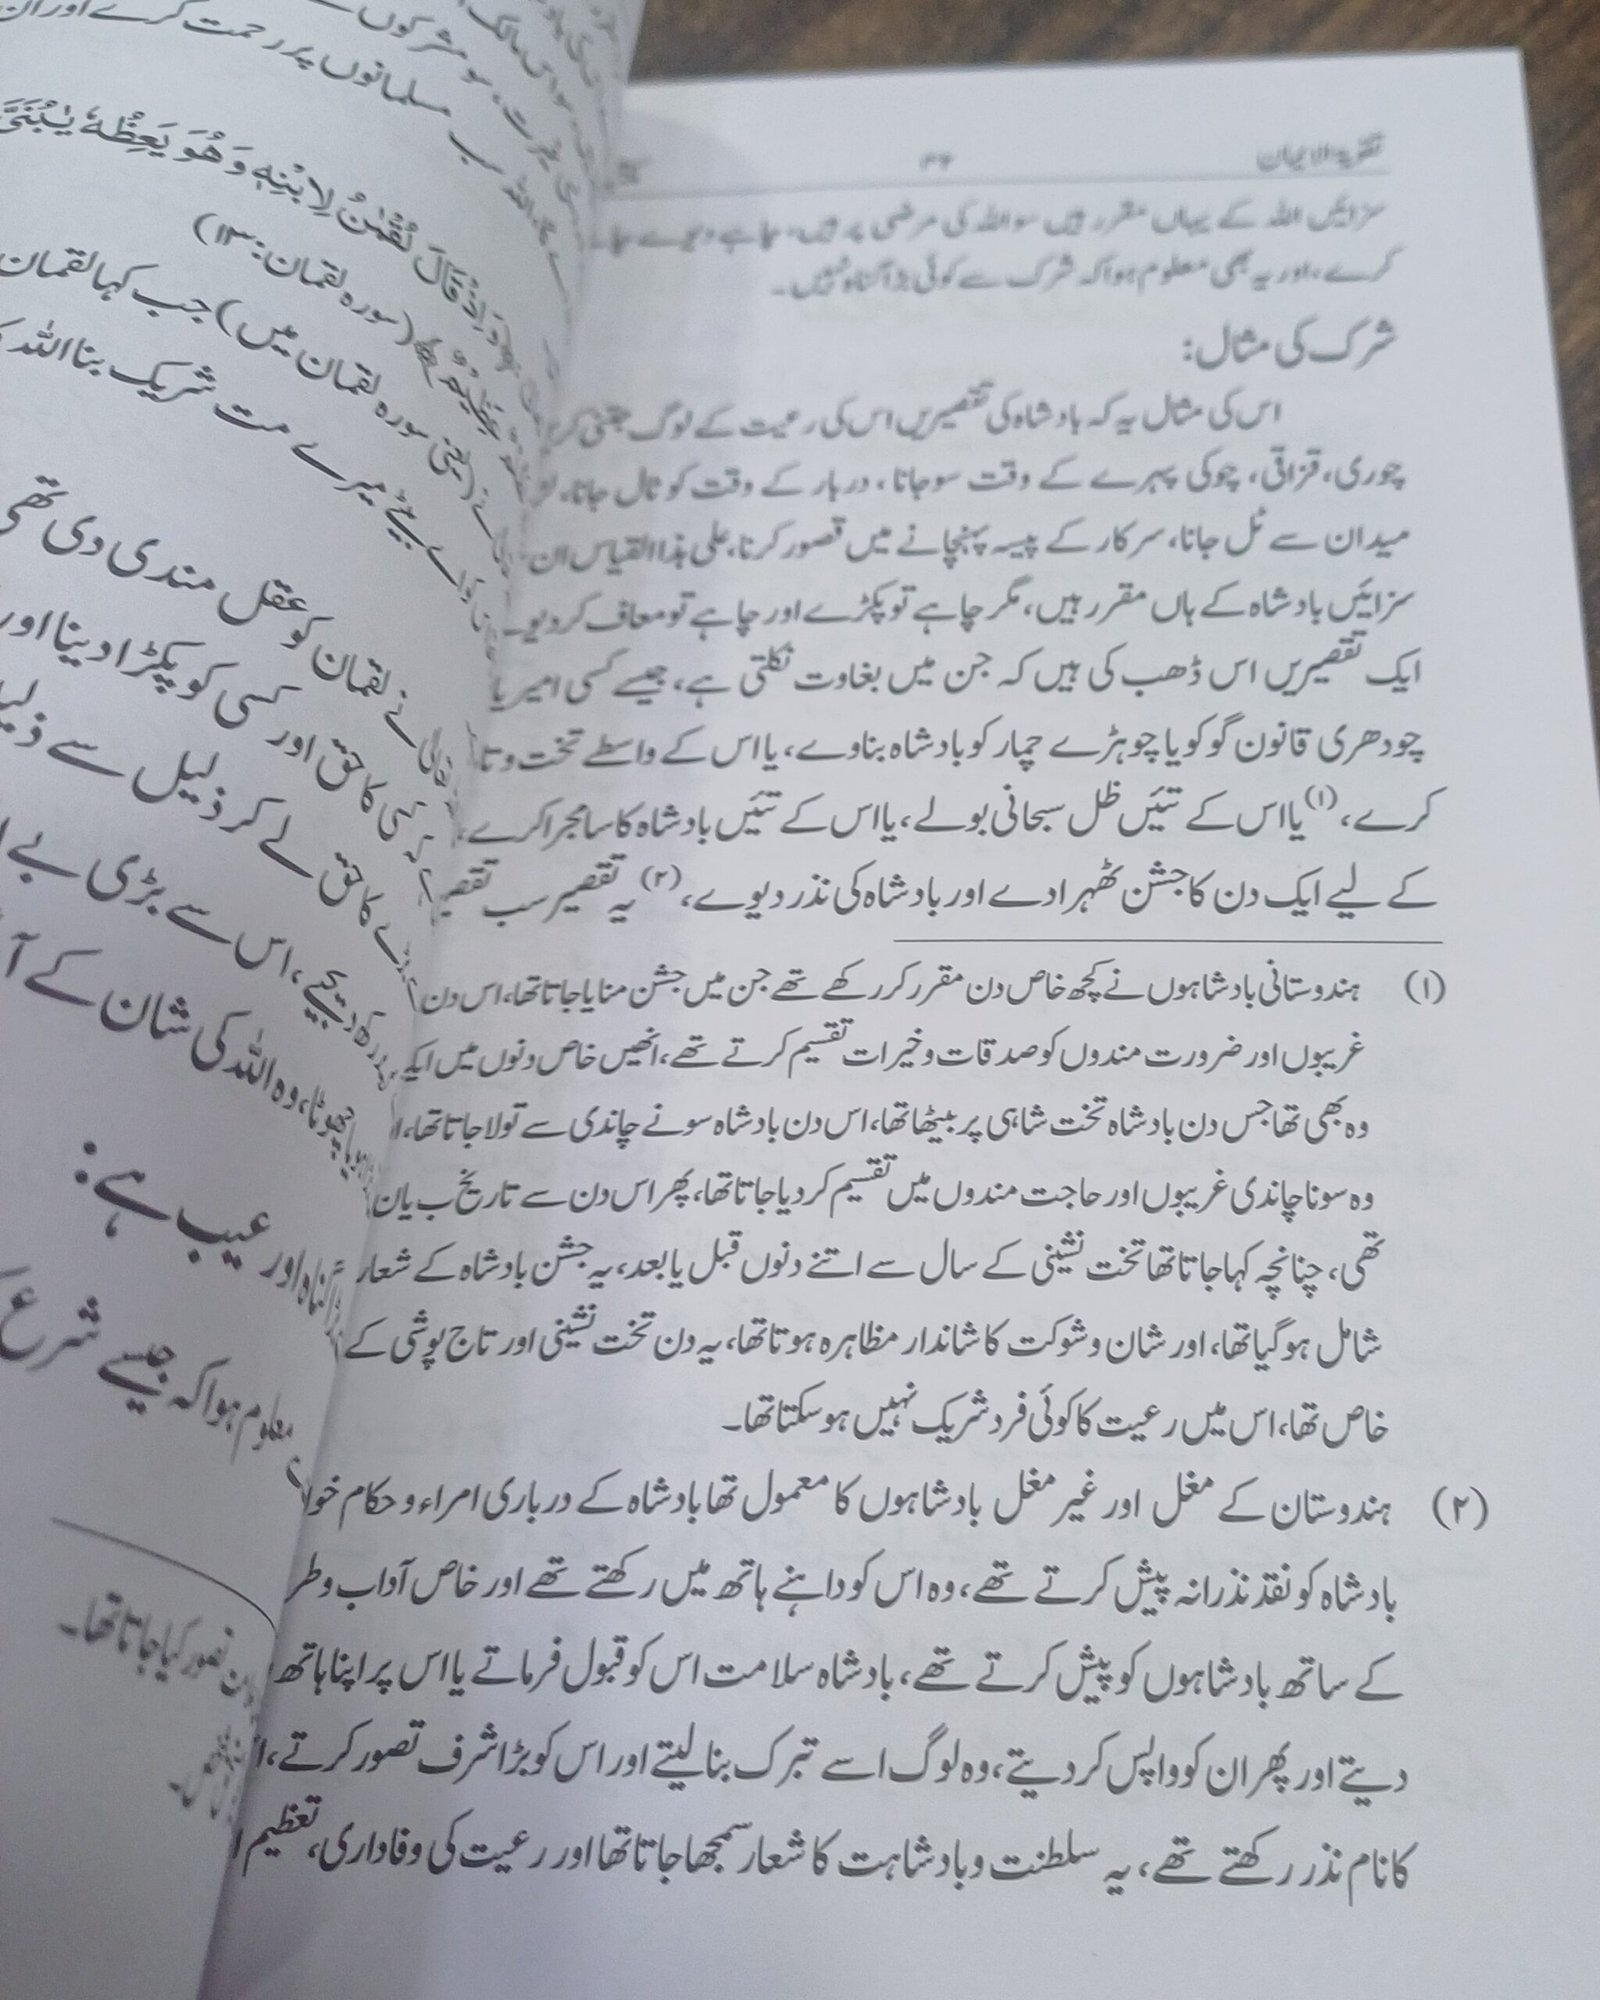 تقویۃ الایمان
۴۶
سزائیں اللہ کے یہاں مقرر ہیں سو اللہ کی مرضی پر ہیں، چاہے دیوے چاہے
کرے، اور یہ بھی معلوم ہوا کہ شرک سے کوئی بڑا گناہ نہیں۔
شرک کی مثال:
اس کی مثال یہ کہ بادشاہ کی تقصیریں اس کی رعیت کے لوگ جتنی
چوری، قزاقی، چوکی پہرے کے وقت سوجانا، دربار کے وقت کو ٹال جانا،
میدان سے ٹل جانا، سرکار کے پیسہ پہنچانے میں قصور کرنا، علی ہذا القیاس ان
سزائیں بادشاہ کے ہاں مقرر ہیں، مگر چاہے تو پکڑے اور چاہے تو معاف کر دیوے
ایک تقصیریں اس ڈھب کی ہیں کہ جن میں بغاوت نکلتی ہے، جیسے کسی امیر یا
چودھری قانون گو کو یا چوہڑے چمار کو بادشاہ بناوے، یا اس کے واسطے تخت و تا
کرے، (۱) یا اس کے تئیں ظل سبحانی بولے، یا اس کے تئیں بادشاہ کا سا مجرا کرے،
کے لیے ایک دن کا جشن ٹھہرا دے اور بادشاہ کی نذر دیوے، (۲) یہ تقصیر سب
(۱) ہندوستانی بادشاہوں نے کچھ خاص دن مقرر کر رکھے تھے جن میں جشن منایا جاتا تھا، اس دن
غریبوں اور ضرورت مندوں کو صدقات و خیرات تقسیم کرتے تھے، انھیں خاص دنوں میں ایک
وہ بھی تھا جس دن بادشاہ تخت شاہی پر بیٹھا تھا، اس دن بادشاہ سونے چاندی سے تولا جاتا تھا،
وہ سونا چاندی غریبوں اور حاجت مندوں میں تقسیم کر دیا جاتا تھا، پھر اس دن سے تاریخ ب یان
تھی، چنانچہ کہا جاتا تھا تخت نشینی کے سال سے اتنے دنوں قبل یا بعد، یہ جشن بادشاہ کے شعار
شامل ہو گیا تھا، اور شان و شوکت کا شاندار مظاہرہ ہوتا تھا، یہ دن تخت نشینی اور تاج پوشی کے
خاص تھا، اس میں رعیت کا کوئی فرد شریک نہیں ہو سکتا تھا۔
(۲) ہندوستان کے مغل اور غیر مغل بادشاہوں کا معمول تھا بادشاہ کے درباری امراء و حکام
بادشاہ کو نقد نذرانہ پیش کرتے تھے، وہ اس کو داہنے ہاتھ میں رکھتے تھے اور خاص آداب و طر
کے ساتھ بادشاہوں کو پیش کرتے تھے، بادشاہ سلامت اس کو قبول فرماتے یا اس پر اپنا ہاتھ
دیتے اور پھر ان کو واپس کر دیتے، وہ لوگ اسے تبرک بنا لیتے اور اس کو بڑا شرف تصور کرتے،
کا نام نذر رکھتے تھے، یہ سلطنت و بادشاہت کا شعار سمجھا جاتا تھا اور رعیت کی وفاداری، تعظیم
مسلمانوں پر رحمت کرے اور ان
وَإِذْ قَالَ لُقْمٰنُ لِابْنِهٖ وَهُوَ يَعِظُهٗ يٰبُنَيَّ
عَظِيْمٌ (سورہ لقمان:۱۳)
(یعنی سورہ لقمان میں) جب کہا لقمان
بیٹے میرے مت شریک بنا اللہ
نے لقمان کو عقل مندی دی تھی
کسی کا حق اور کسی کو پکڑا دینا اور
کا حق لے کر ذلیل سے ذلیل
رکھ دیجیے، اس سے بڑی بے
یا چھوٹا، وہ اللہ کی شان کے آ
گناہ اور عیب ہے:
معلوم ہوا کہ جیسے شرع
تصور کیا جاتا تھا۔